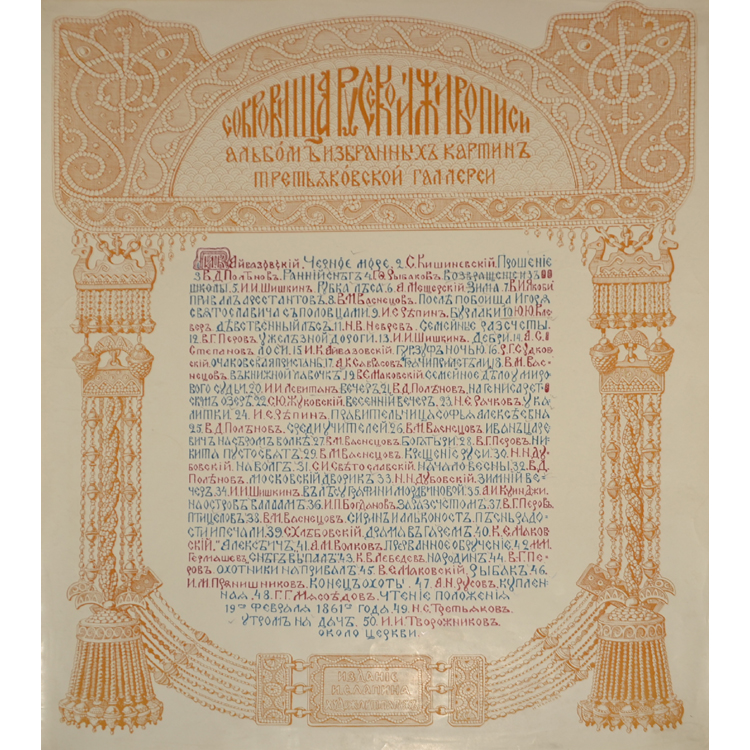 СОКРОВИЩА РУССКОЙ ЖИВОПИСИ
АЛЬБОМЪ ИЗБРАННЫХЪ КАРТИНЪ
ТРЕТЬЯКОВСКОЙ ГАЛЛЕРЕИ
Айвазовскій. Черное море. 2. С. Кишиневскій. Прошеніе
3. В. Д. Полѣновъ. Ранній снѣгъ. 4. Рыбаковъ. Возвращеніе изъ
школы. 5. И. И. Шишкин. Рубка лѣса. 6. А. Мещерскій. Зима. 7. В. И. Якоби
Привалъ арестантовъ. 8. В. М. Васнецов. Послѣ побоища Игоря
Святославича съ половцами. 9. И. Е. Рѣпинъ. Бурлаки. 10. Ю. Ю. Кле-
веръ. Дѣвственный лѣсъ. 11. Н. В. Невревъ. Семейные разсчеты.
12. В. Г. Перовъ. У желѣзной дороги. 13. И. И. Шишкин. Дебри. 14. А. С.
Степановъ. Лоси. 15. И. К. Айвазовскій. Гурзуфъ ночью. 16. Р. Г. Судков-
скій. Очаковская пристань. 17. А. К. Саврасовъ. Грачи прилетѣли. 18. В. М. Вас-
нецовъ. Въ книжной лавочкѣ. 19. В. Е. Маковскій. Семейное дѣло у миро-
вого судьи. 20. И. И. Левитан. Вечеръ. 21. В. Д. Полѣновъ. На Генисарет-
скомъ озерѣ. 22. С. Ю. Жуковскій. Весенній вечеръ. 23. Н. Е. Рачковъ. У ка-
литки. 24. И. Е. Рѣпинъ. Правительница Софья Алексѣевна
25. В. Д. Полѣновъ. Среди учителей. 26. В. М. Васнецовъ. Иванъ царе-
вичъ на сѣромъ волкѣ. 27. В. М. Васнецовъ. Богатыри. 28. В. Г. Перовъ. Ни-
кита Пустосвятъ. 29. В. М. Васнецовъ. Крещеніе Руси. 30. Н. Н. Ду-
бовскій. На Волгѣ. 31. С. И. Свѣтославскій. Начало весны. 32. В. Д.
Полѣновъ. Московскій дворикъ. 33. Н. Н. Дубовскій. Зимній ве-
черъ. 34. И. И. Шишкин. Въ лѣсу графини Мордвиновой. 35. А. И. Куинджи.
На островѣ Валаамѣ. 36. И. П. Богдановъ. За разсчетомъ. 37. В. Г. Перовъ.
Птицеловъ. 38. В. М. Васнецовъ. Сиринъ и Алконостъ. Пѣснь радо-
сти и печали. 39. С. Хлѣбовскій. Драма въ гаремѣ. 40. К. Е. Маков-
скій. "Алексѣичъ". 41. А. М. Волковъ. Прерванное обрученіе. 42.
Гермашевъ. Снѣгъ выпалъ. 43. К. В. Лебедевъ. На родинѣ. 44. В. Г. Пе-
ровъ. Охотники на привалѣ. 45. В. Е. Маковскій. Рыбакъ. 46.
И. М. Прянишниковъ. Конецъ охоты. 47. А. Н. Русовъ. Куплен-
ная. 48. Г. Г. Мясоѣдовъ. Чтеніе положенія
19го Февраля 1861го года. 49. Н. С. Третьяковъ.
Утромъ на дачѣ. 50. И. И. Творожниковъ.
Около церкви.
ИЗДАНІЕ